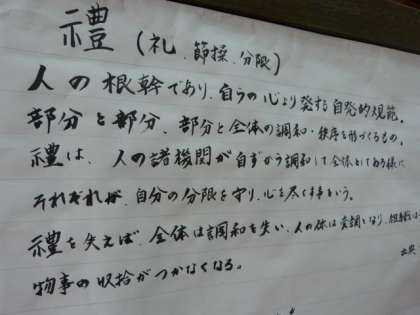 禮(礼、節操、分限)
人の根幹であり、自らの心より発する自発的規範。
部分と部分、部分と全体の調和・秩序を形づくるもの。
禮は、人の諸機関が自ずから調和して全体としてある様に
それぞれが、自分の分限を守り、心を尽くす事をいう。
禮を失えば、全体は調和を失い、人の体は変調となり、組織は
物事の収拾がつかなくなる。